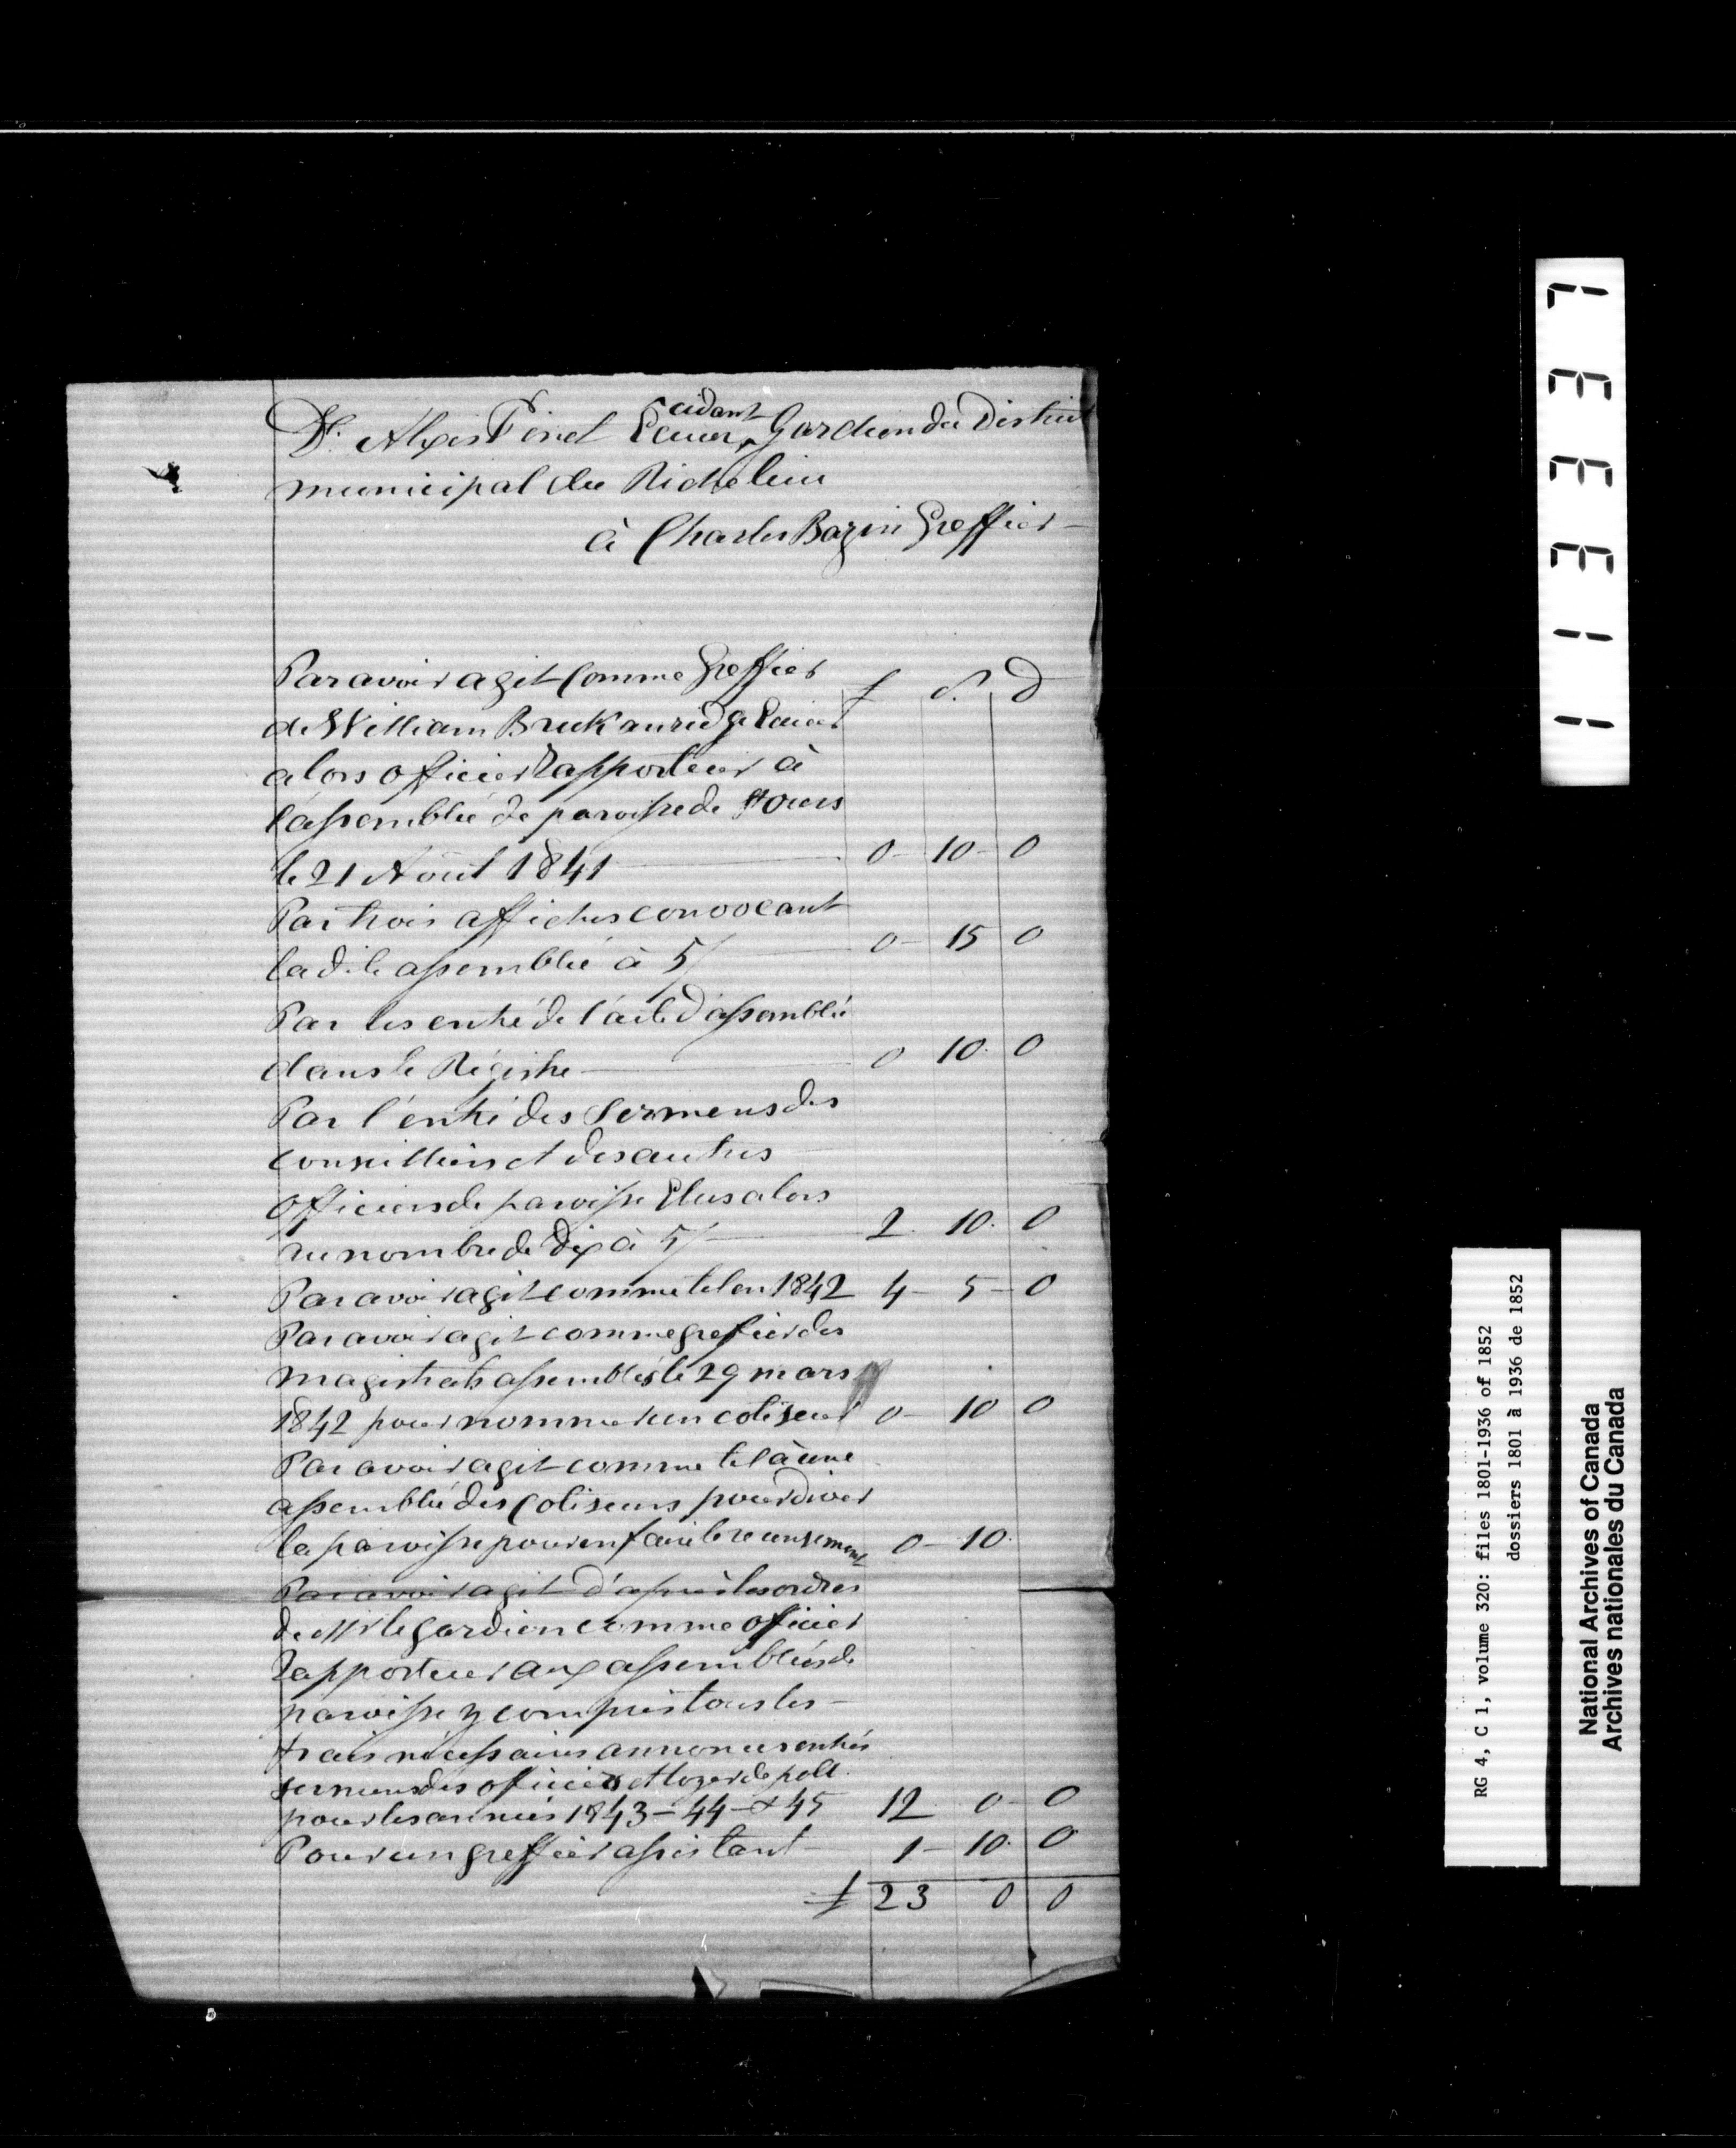 Dt. Alexis Pinet Ecuier, cidant Gardien du District
municipal du Richelieu
à Charles Bazin Greffier —
£ S. D
Par avoir agit comme Greffier
de William Breckanridge Ecuier
alors officier Rapporteur à
l'assemblée de paroisse de St Ours
le 21 Août 1841 — 0 - 10 - 0
Par trois affiches convocant
la dite assemblée à 5/ — 0 - 15 0
Par les entré de l'acte d'assemblée
dans le Régistre — 0 10. 0
Par l'entré des Sermens des
conseilliers et des autres —
officiers de paroisse Elus alors
au nombre de Dix à 5/ — 2. 10. 0
Par avoir agit comme tel en 1842 4 - 5 - 0
Par avoir agit comme grefier des
magistrats assemblés le 29 mars
1842 pour nommer un cotiseur 0 - 10 0
Par avoir agit comme tel à une
assemblée des Cotiseurs pour diviser
la paroisse pour en faire le recensement 0 - 10.
Par avoir agit d'après les ordres
de Mr le gardien comme officier
Rapporteur aux assemblées de
paroisse y compris tous les —
frais nécessaires annonces entrés
sermens des officiers et loyer de poll.
pour les années 1843 - 44 - & 45 12 0 - 0
Pour un greffier assistant — 1 - 10. 0
£ 23 0 0
113337
RG 4, C 1, volume 320: files 1801-1936 of 1852
dossiers 1801 à 1936 de 1852
National Archives of Canada
Archives nationales du Canada